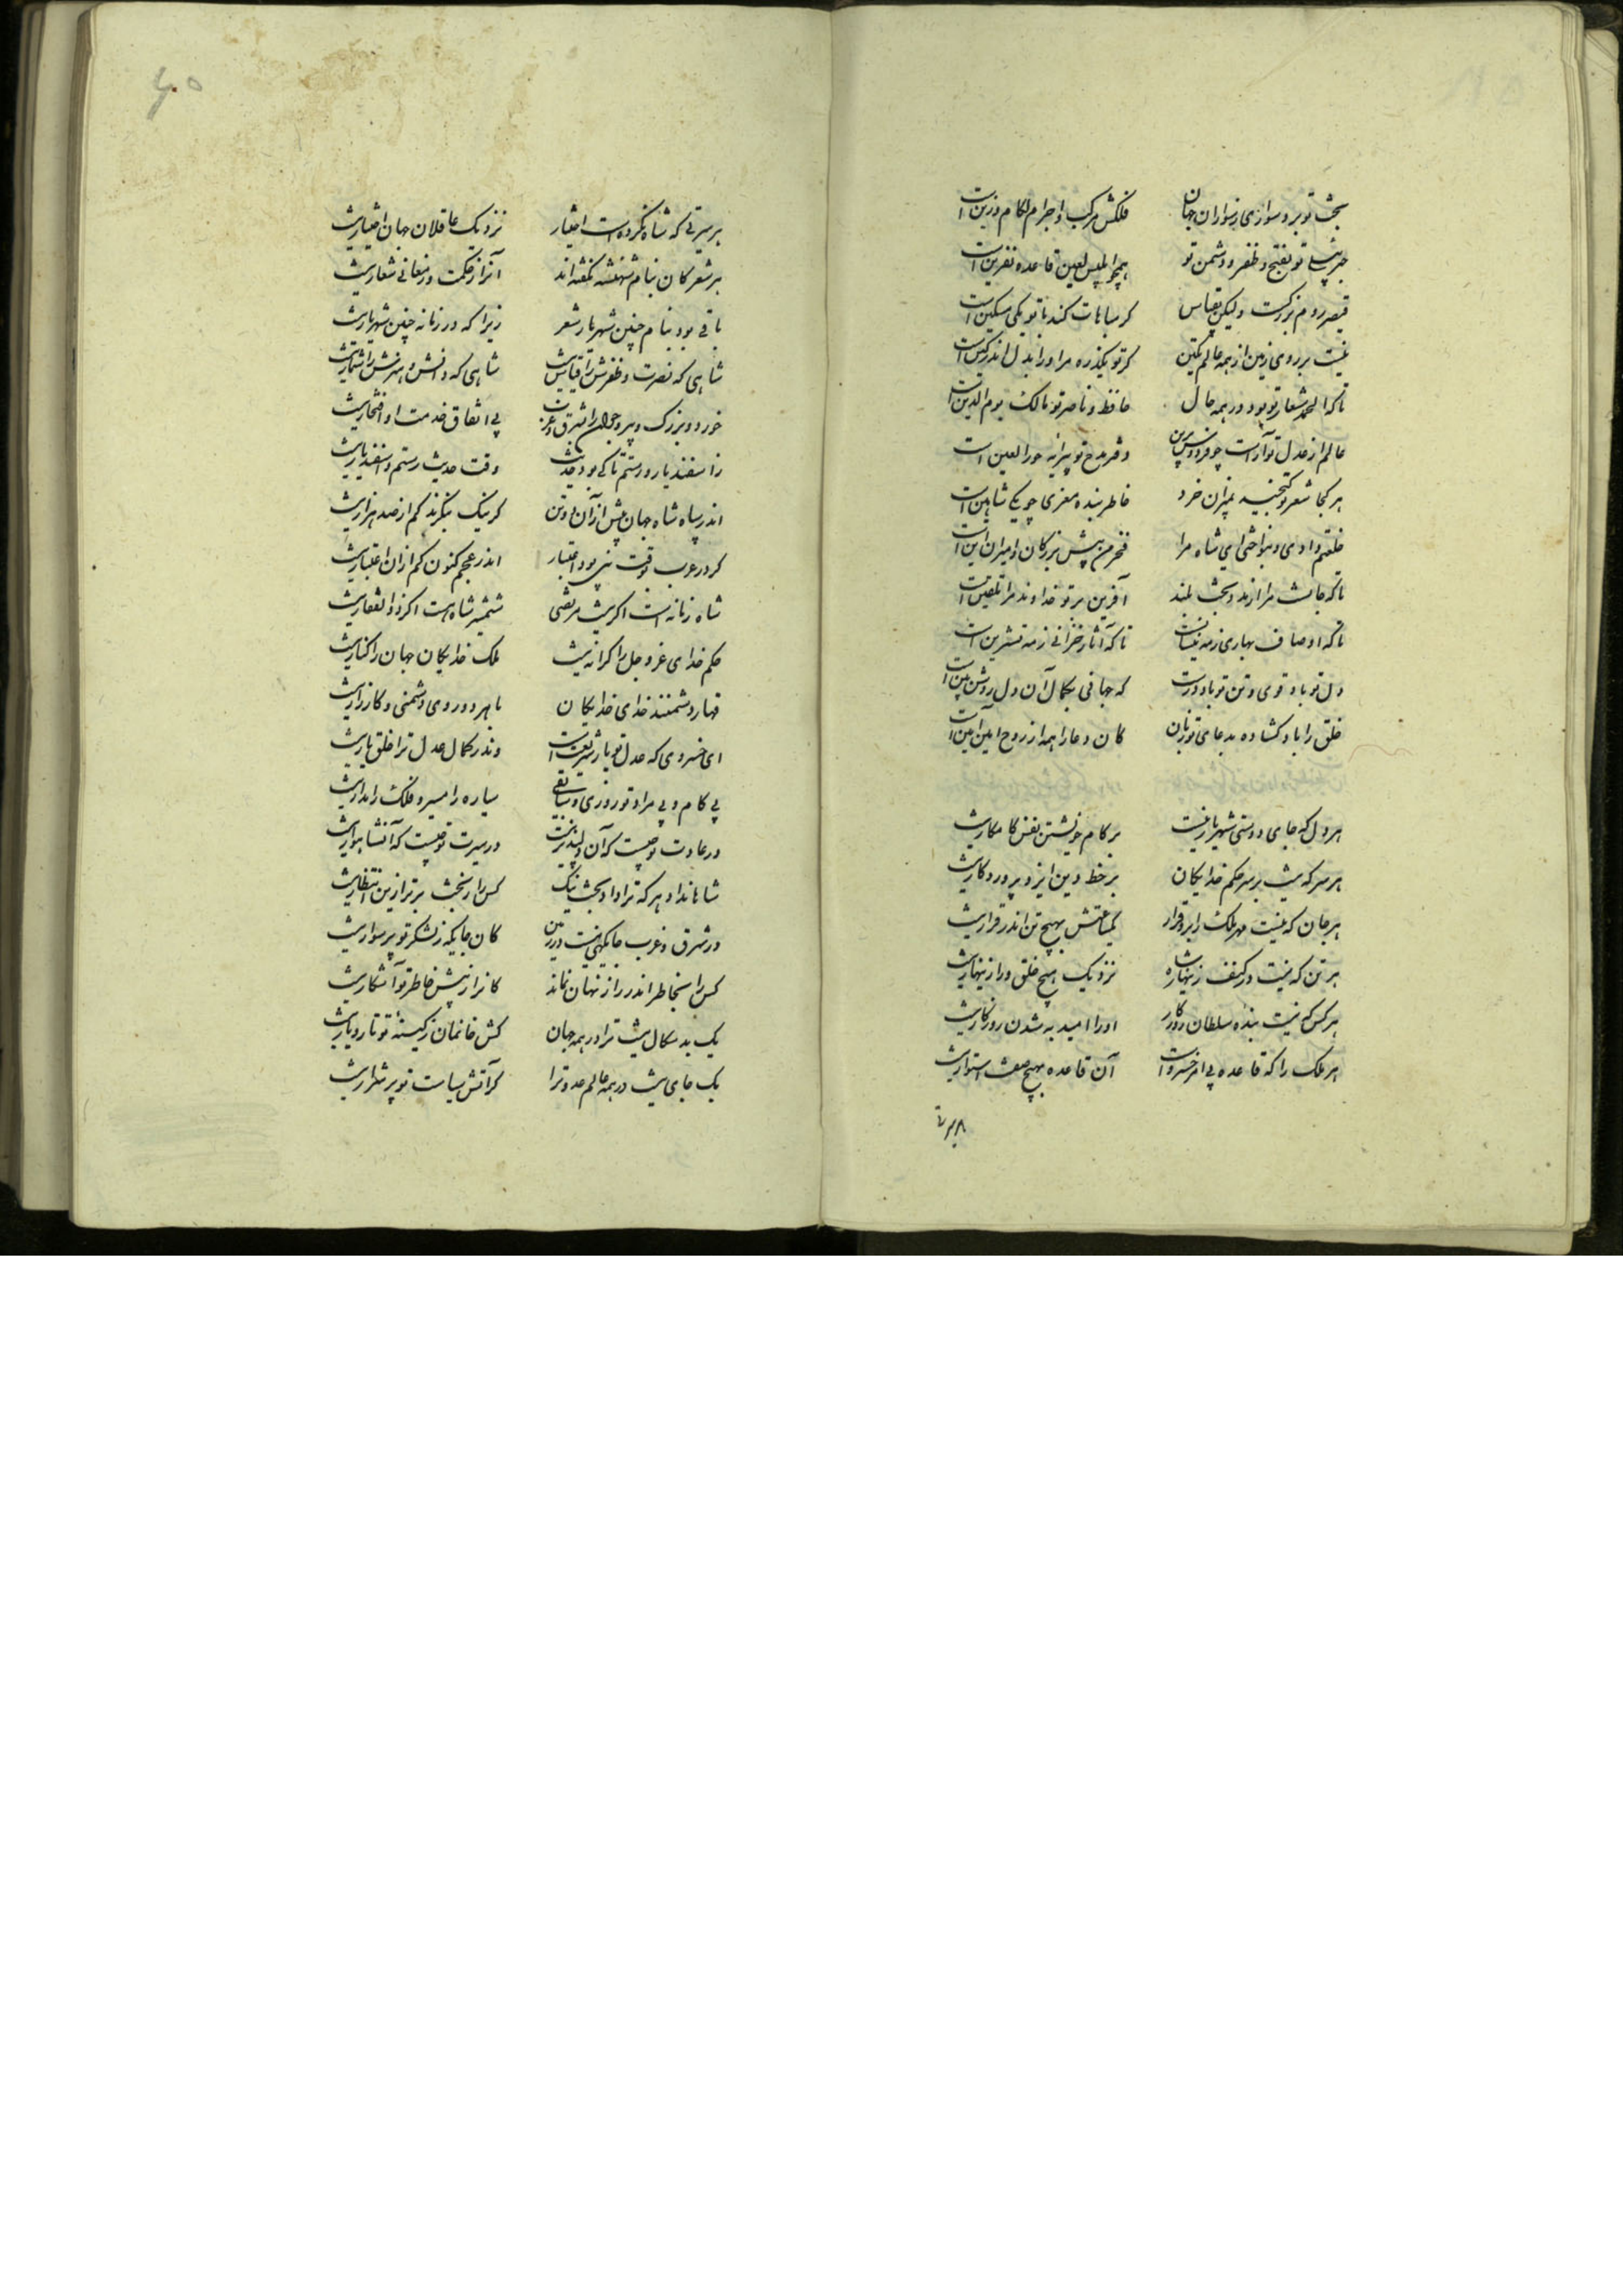 بخت تو بر وسوازمی ز سواران جهان فلکش مرکب و اجرام لگام و زین است
جبرئیلی تو بفتح و ظفر و دشمن تو همچو ابلیس لعین قاعده نفرین است
قیصر روم بزرکست ولیکن بقیاس کر مباهات کند با تو یکی مسکین است
نیست بر روی زمین از همه عالم یکتن کز تو یکذره مر اورا بدل اندر کین است
تا که الحمد شعار تو بود در همه حال حافظ و ناصر تو مالک یوم الدین است
عالم از عدل تو آراست چو فردوس برین دفتر مدح تو پیرایه حور العین است
هر کجا شعر تو کنجینه بمیزان خرد خاطر بنده معزی چو یکی شاهین است
خلعتم دادی و بنواختی ای شاه مرا فخر من پیش بزرکان و امیران این است
تا که جانست مرا از بد و بخت بلند آفرین بر تو خداوند مرا تلقین است
تا که اوصاف بهاری ز مه نیسانست تا که آثار خزانی ز مه تشرین است
دل تو باد قوی و تن تو باد درست که جهانی بکمال آن دل روشن بین است
خلق را باد کشاده بدعای تو زبان کان دعا را همه از روح امین آمین است
هر دل که جای دوستی شهریار نیست بر کام خویشتن نفسی کامکار نیست
هر سر که نیست بر سر حکم خدایکان بر خط دین ایزد پروردکار نیست
هر جان که نیست مهر ملک را برو قرار یکساعتش بهیچ تن اندر قرار نیست
هر تن که نیست در کنف زینهار شاه نزدیک هیچ خلق ورا زینهار نیست
هر کس که نیست بنده سلطان روزکار اورا امید به شدن روزکار نیست
هر ملک را که قاعده بی امر خسرو است آن قاعده بهیچ صفت استوار نیست
هر سیرتی
هر سیرتی که شاه نکرده است اختیار نزدیک عاقلان جهان اختیار نیست
هر شعر کان بنام شهنشه نگفته اند آنرا ز حکمت و ز معانی شعار نیست
باقی بود بنام چنین شهریار شعر زیرا که در زمانه چنین شهریار نیست
شاهی که نصرت و ظفرش را قیاس نیست شاهی که دانش و هنرش را شمار نیست
خورد و بزرک و پیر و جوان را بشرق و غرب بی اتفاق خدمت او افتخار نیست
ز اسفندیار و رستم تا کی بود حدیث وقت حدیث رستم و اسفندیار نیست
اندر سپاه شاه جهان بیش از آن و این کر نیک بنکرند کم از صد هزار نیست
کر در عرب بوقت نبی بود اعتبار اندر عجم کنون کم ازان اعتبار نیست
شاه زمانه است اکر نیست مرتضی شمشیر شاه هست اکر ذوالفقار نیست
حکم خدای عز و جل را کرانه نیست ملک خدایکان جهان را کنار نیست
قهار دشمنند خدای خدایکان با هر دو روی دشمنی و کارزار نیست
ای خسروی که عدل تو یار شریعت است وندر کمال عدل ترا خلق یار نیست
بی کام و بی مراد تو روزی و ساعتی سیاره را مسیر و فلک را مدار نیست
در عادت تو چیست که آن دلپذیر نیست در سیرت تو چیست که آن شاهوار نیست
شاها نداد هر که ترا داد بخت نیک کس را ز بخت برتر ازین انتظار نیست
در شرق و غرب جایکهی نیست در زمین کان جایکه ز لشکر تو پر سوار نیست
کس را بخاطر اندر راز نهان نماند کانرا ز پیش خاطر تو آشکار نیست
یک بدسکال نیست ترا در همه جهان کش خانمان ز کینه تو تار و مار نیست
یک جای نیست در همه عالم عدو ترا کز آتش سیاست تو پر شرار نیست